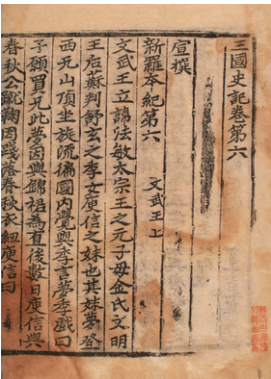 三國史記卷第六
宣撰
新羅本紀第六 文武王上
文武王立諱法敏太宗王之元子母金氏文明
王后蘇判舒玄之季女庾信之妹也其姊夢登
西兄山頂坐旋流徧國內覺與季言夢季戱曰
予願買兄此夢因與錦裙為直後數日庾信與
春秋公蹴鞠因踐落春秋衣紐庾信曰